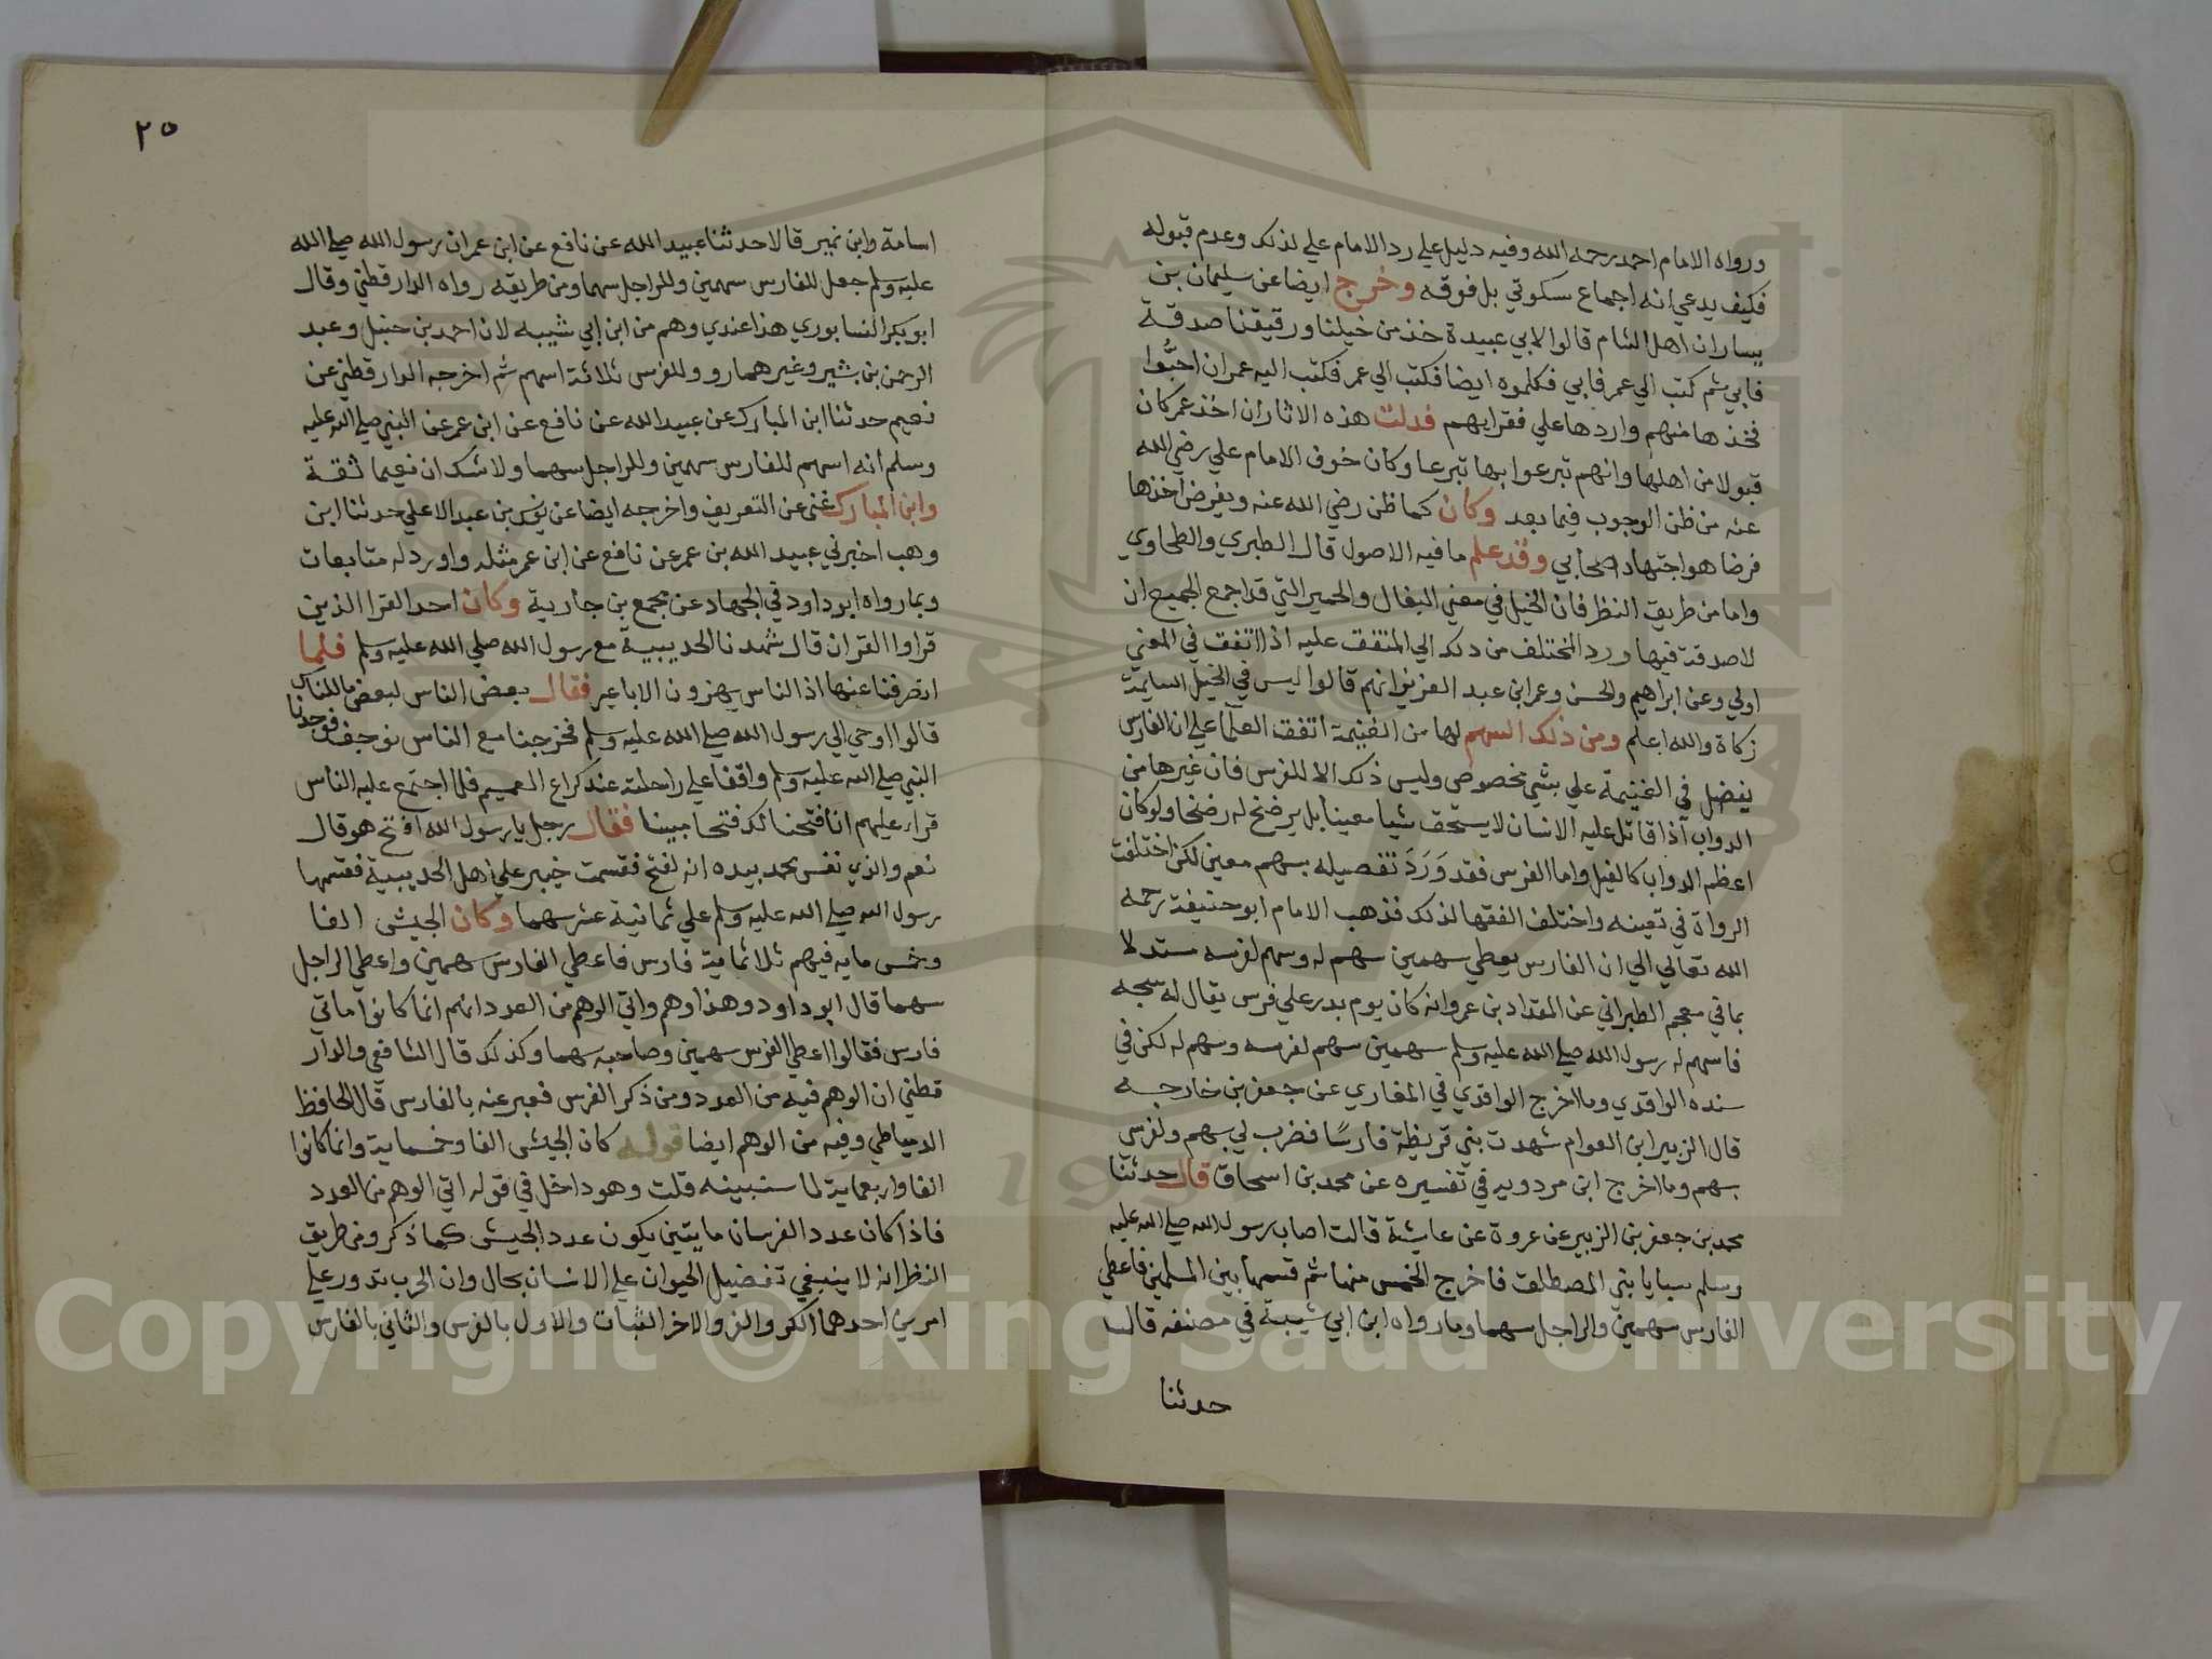 ورواه الامام احمد رحمه الله وفيه دليل علي رد الامام علي لذلك وعدم قبوله
فكيف يدعي انه اجماع سكوتي بل فوقه وخرج ايضا عن سليمان بن
يسار ان اهل الشام قالوا لابي عبيدة خذ من خيلنا ورقيقنا صدقة
فابي ثم كتب الي عمر فابي فكلموه ايضا فكتب الي عمر فكتب اليه عمر ان احبُّوا
فخذها منهم وارددها علي فقرايهم فدلت هذه الاثار ان اخذ عمر كان
قبولا من اهلها وانهم تبرعوا بها تبرعا وكان خوف الامام علي رضي الله
عنه من ظن الوجوب فيما بعد وكان كما ظن رضي الله عنه وبفرض اخذها
فرضا هو اجتهاد صحابي وقد علم ما فيه الاصول قال الطبري والطحاوي
واما من طريق النظر فان الخيل في معني البغال والحمير التي قد اجمع الجميع ان
لا صدقة فيها ورد المختلف من ذلك الي المتفق عليه اذا اتفق في المعني
اولي وعن ابراهيم والحسن وعمر ابن عبد العزيز انهم قالوا ليس في الخيل السايمة
زكاة والله اعلم ومن ذلك السهم لها من الغنيمة اتفق العلما علي ان الفارس
يفضل في الغنيمة علي بشي مخصوص وليس ذلك الا للفرس فان غيرها من
الدواب اذا قاتل عليه الانسان لا يستحق شيا معينا بل يرضخ له رضخا ولو كان
اعظم الدواب كالفيل واما الفرس فقد وَرَدَ تفصيله بسهم معين لكن اختلفت
الرواة في تعينه واختلف الفقها لذلك فذهب الامام ابو حنيفة رحمه
الله تعالي الي ان الفارس يعطي سهمين سهم له وسهم لفرسه مستدلا
بما في معجم الطبراني عن المقداد بن عمرو انه كان يوم بدر علي فرس يقال له سبحه
فاسهم له رسول الله صلي الله عليه وسلم سهمين سهم لفرسه وسهم له لكن في
سنده الواقدي وما اخرج الواقدي في المغازي عن جعفر بن خارجه
قال الزبير ابن العوام شهدت بني قريظة فارسًا فضرب لي بسهم ولفرسي
بسهم وما اخرج ابن مردويه في تفسيره عن محمد بن اسحاق قال حدثنا
محمد بن جعفر بن الزبير عن عروة عن عايشة قالت اصاب رسول الله صلي الله عليه
وسلم سبايا بني المصطلق فاخرج الخمس منها ثم قسمها بين المسلمين فاعطي
الفارس سهمين والراجل سهما وما رواه ابن ابي شيبة في مصنفه قال
حدثنا
٢٥
اسامة وابن نمير قالا حدثنا عبيد الله عن نافع عن ابن عمر ان رسول الله صلي الله
عليه وسلم جعل للفارس سهمين وللراجل سهما ومن طريقه رواه الدارقطني وقال
ابو بكر النسابوري هذا عندي وهم من ابن ابي شيبه لان احمد بن حنبل وعبد
الرحمن بن بشير وغيرهما رووا للفرس ثلاثة اسهم ثم اخرجه الدارقطني عن
نعيم حدثنا ابن المبارك عن عبيد الله عن نافع عن ابن عمر عن النبي صلي الله عليه
وسلم انه اسهم للفارس سهمين وللراجل سهما ولا شك ان نعيما ثقة
وابن المبارك غني عن التعريف واخرجه ايضا عن يونس بن عبد الاعلي حدثنا ابن
وهب اخبرني عبيد الله بن عمر عن نافع عن ابن عمر مثله واورد له متابعات
وبما رواه ابو داود في الجهاد عن مجمع بن جارية وكان احد القرا الذين
قراوا القران قال شهدنا الحديبية مع رسول الله صلي الله عليه وسلم فلما
انصرفنا عنها اذا الناس يهزون الاباعير فقال بعض الناس لبعض ما للناس
قالوا اوحي الي رسول الله صلي الله عليه وسلم فخرجنا مع الناس نوجف فوجدنا
النبي صلي الله عليه وسلم واقفا علي راحلته عند كراع الغميم فلما اجتمع عليه الناس
قراء عليهم انا فتحنا لك فتحا مبينا فقال رجل يا رسول الله افتح هو قال
نعم والذي نفس محمد بيده انه لفتح فقسمت خيبر علي اهل الحديبية فقسمها
رسول الله صلي الله عليه وسلم علي ثمانية عشر سهما وكان الجيش الفا
وخمس مايه فيهم ثلاثماية فارس فاعطي الفارس سهمين واعطي الراجل
سهما قال ابو داود وهذا وهم واتي الوهم من العدد انهم انما كانوا ماتي
فارس فقالوا اعطي الفرس سهمين وصاحبه سهما وكذلك قال الشافعي والدار
قطني ان الوهم فيه من العدد ومن ذكر الفرس فعبر عنه بالفارس قال الحافظ
الدمياطي وفيه من الوهم ايضا قوله كان الجيش الفا وخمسماية وانما كانوا
الفا واربعماية لما سنبينه قلت وهو داخل في قوله اتي الوهم من العدد
فاذا كان عدد الفرسان مايتين يكون عدد الجيش كما ذكر ومن طريق
النظر انه لا ينبغي تفضيل الحيوان علي الانسان بحال وان الحرب تدور علي
امرين احدهما الكر والفر والاخر الثبات والاول بالفرس والثاني بالفارس
Copyright © King Saud University
1957